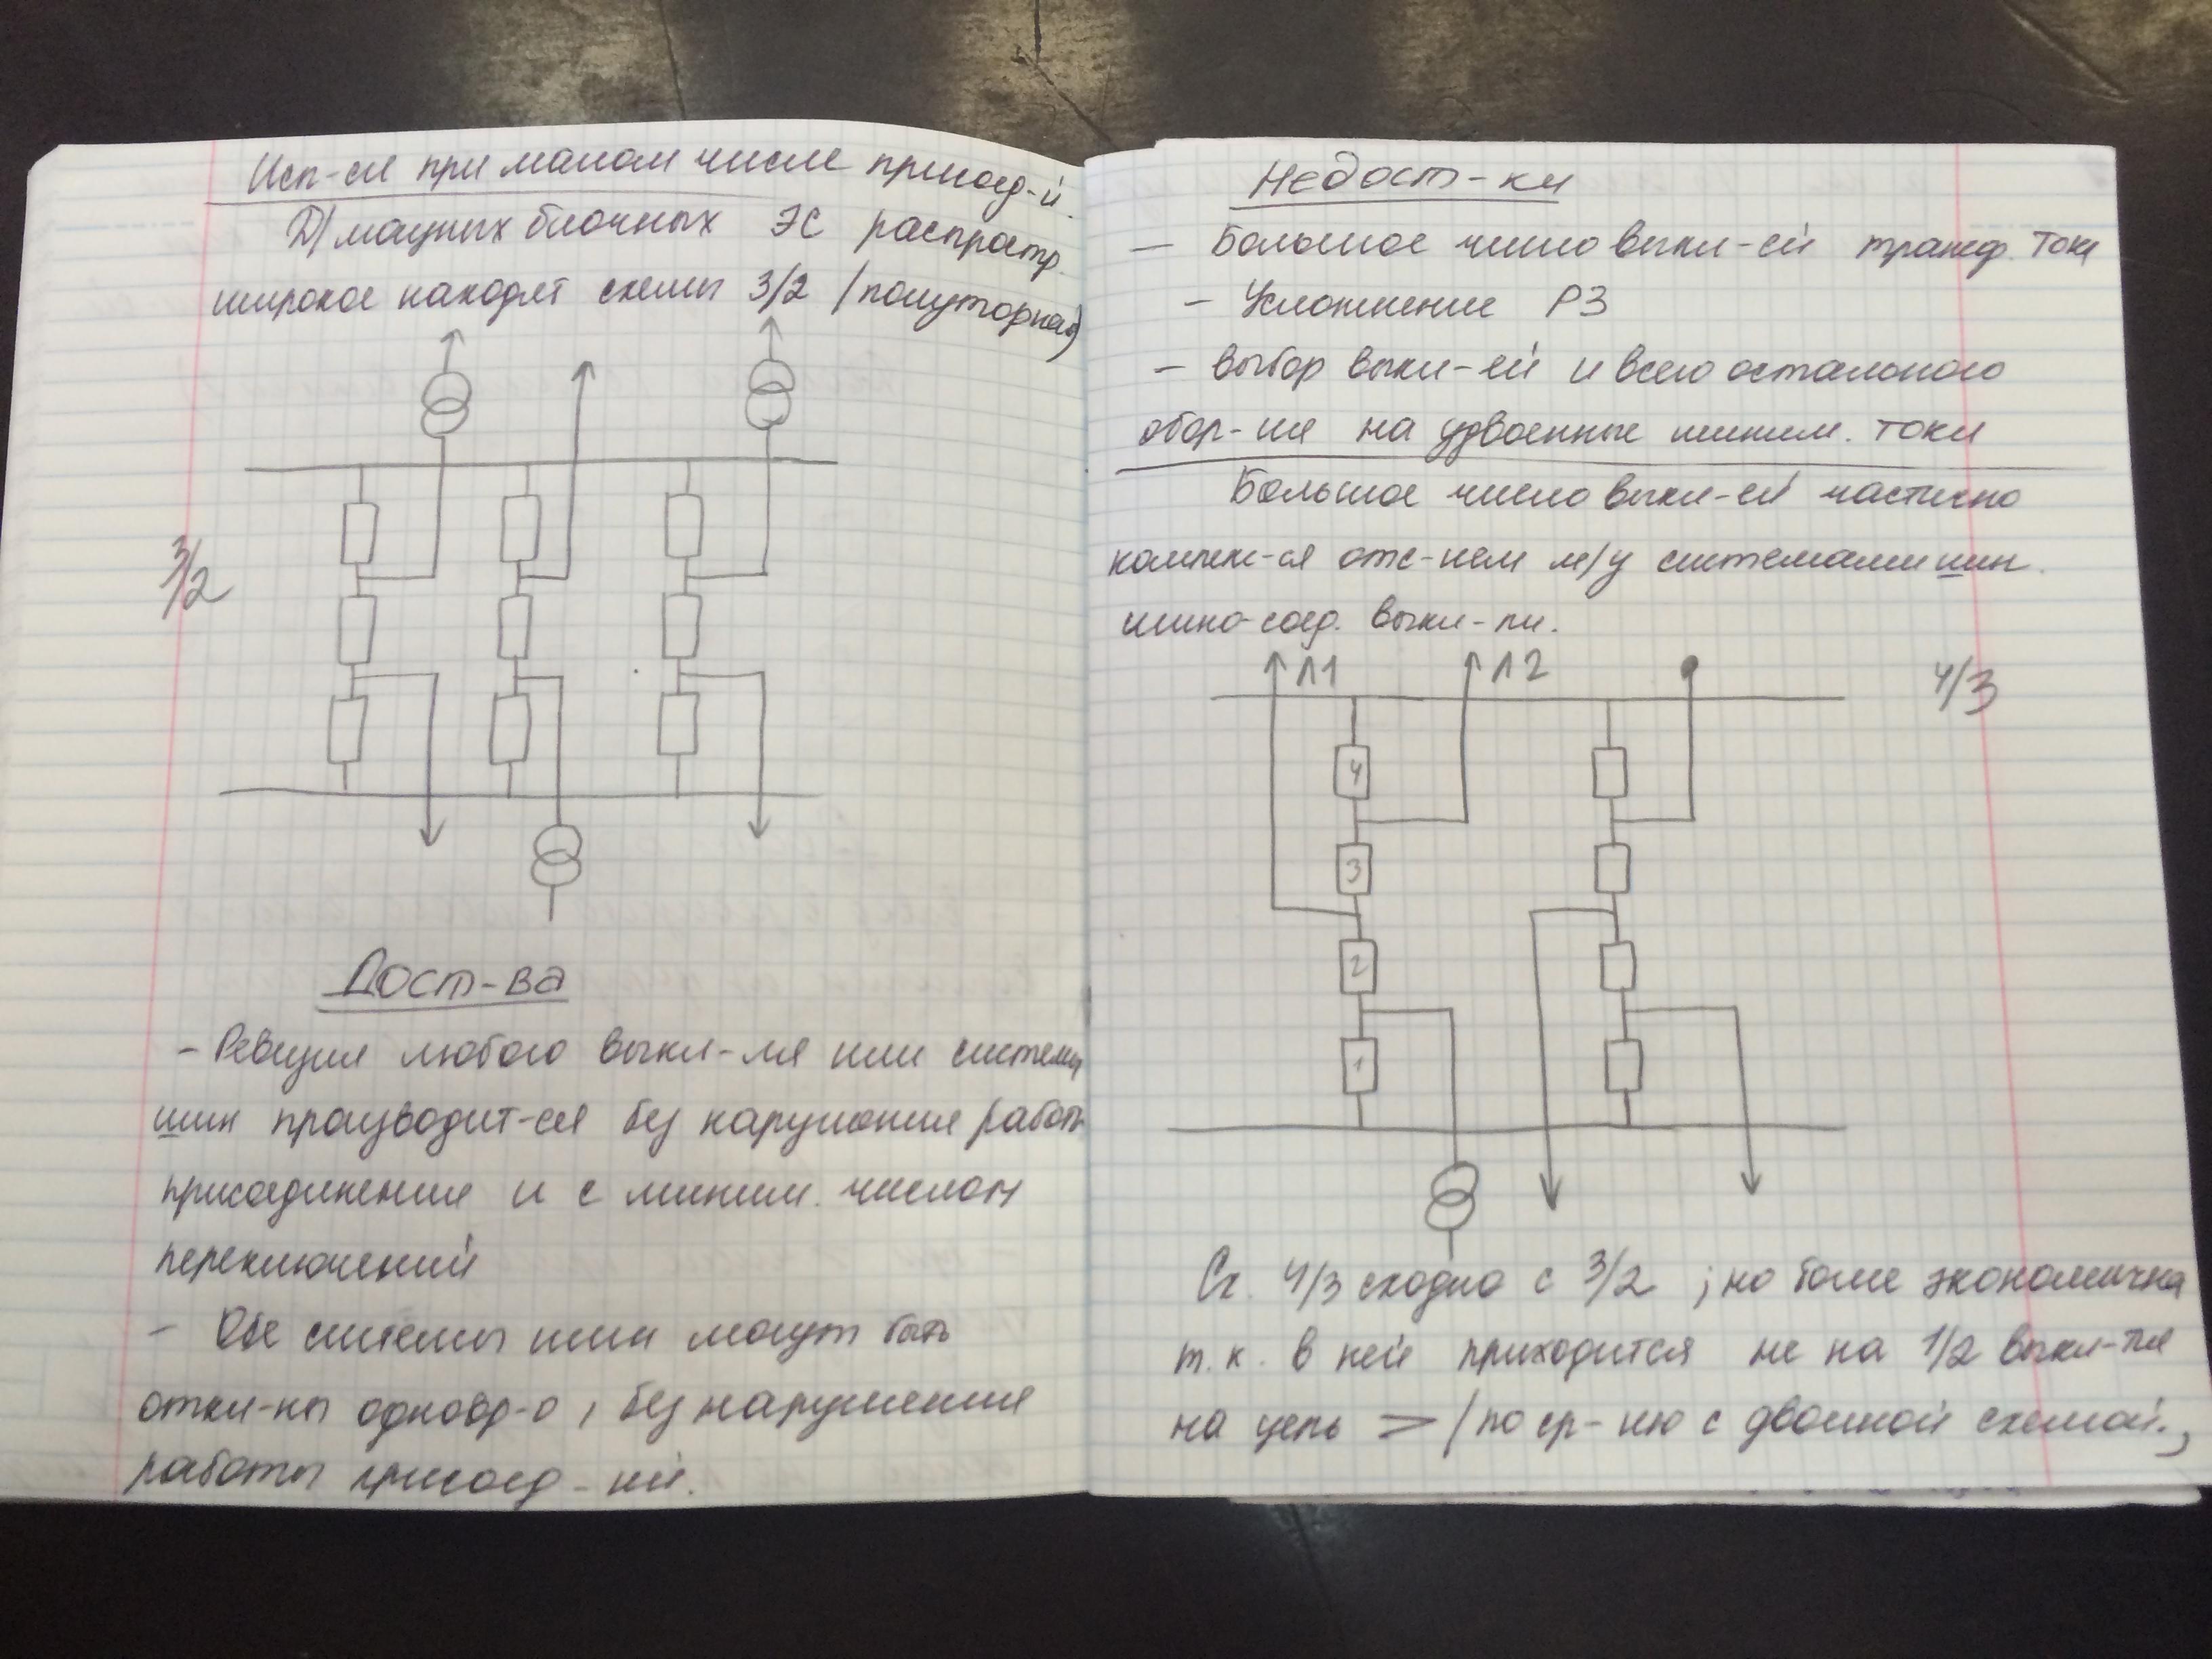 Исп-ся при малом числе присоед-й.
Д/мощных блочных ЭС распростр.
широкое находят схемы 3/2 (полуторная)
3/2
Дост-ва
- Ревизия любого выкл-ля или системы
шин производит-ся без нарушения работы
присоединения и с миним. числом
переключений
- Обе системы шин могут быть
откл-ны одновр-о, без нарушения
работы присоед-ний.
Недост-ки
- Большое число выкл-ей трансф. тока
- Усложнение РЗ
- выбор выкл-ей и всего остального
обор-ия на удвоенные миним. токи
Большое число выкл-ей частично
компен-ся отс-ием м/у системами шин
шино-соед. выкл-ли.
Л1 Л2
4/3
4
3
2
1
Сх. 4/3 сходно с 3/2, но более экономична
т.к. в ней приходится не на 1/2 выкл-ля
на цепь > (по ср-ию с двойной схемой.,